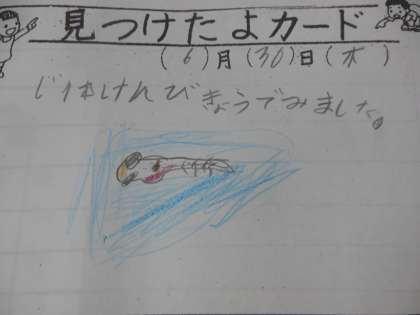 見つけたよカード
(6)月(30)日(木)
じったいけんびきょうでみました。